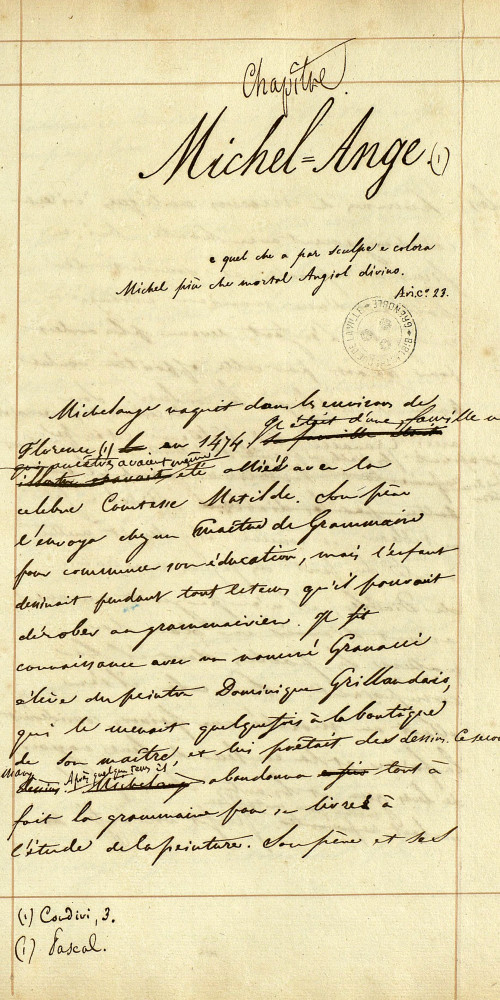 Chapitre.
Michel=Ange. (1)
e quel che a par sculpe e colora
Michel più che mortal Angiol divino.
Ari. c° 23.
GRENOBLE
Michelange naquit dans les environs de
Il était d'une famille
Florence (1) en 1474. sa famille était
qui avait même
illustre et avait été alliée avec la
celebre Comtesse Matilde. Son père
l'envoya chez un maître de Grammaire
pour commencer son éducation, mais l'enfant
dessinait pendant tout le tems qu'il pouvait
dérober au grammairien. Il fit
connaissance avec un nommé Granacci
élève du peintre Dominique Grillandaio,
qui le menait quelquefois à la boutique
de son maître, et lui prêtait des dessins. Ce
Après quelque tems il
dessins. Michelange abandonna enfin tout à
fait la grammaire pour se livrer à
l'étude de la peinture. Son père et ses
(1) Condivi, 3.
(1) Pascal.